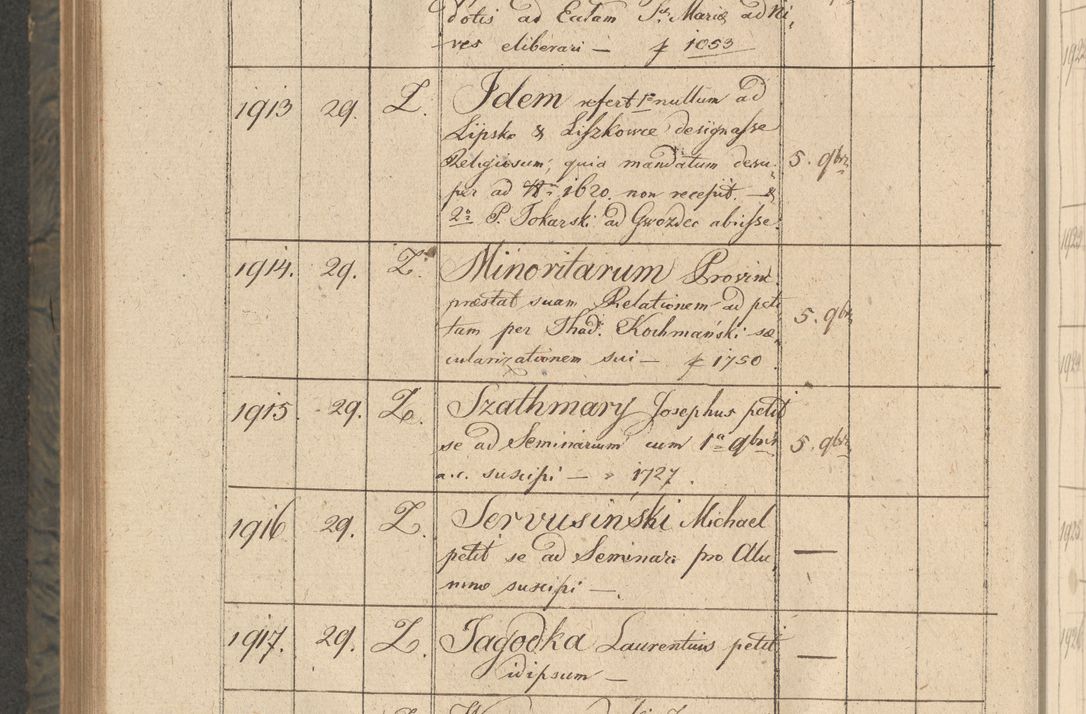 dotis ad Ecclam S. Mariæ ad Ni-
ves eliberari — f 1053
1913 29. Z. Idem refert 1º nullum ad
Lipsko & Liszkowce designasse
Religiosum, quia mandatum desu- 5. 9br.
per ad Nr. 1620. non recepit. — &
2º P. Tokarski ad Gwozdec abiisse.
1914. 29. Z. Minoritarum Provinc.
præstat suam Relationem ad peti-
tam per Thad. Kochmański sæ- 5. 9br.
cularizationem sui — f 1750.
1915 29. Z. Szathmary Josephus petit
se ad Seminarium cum 1a 9bris 5. 9br.
a.c. suscipi — 1727.
1916 29. Z. Servusiński Michael
petit se ad Seminar: pro Alu- —
mno suscipi —.
1917. 29. Z. Jagodka Laurentius petit —
idipsum —